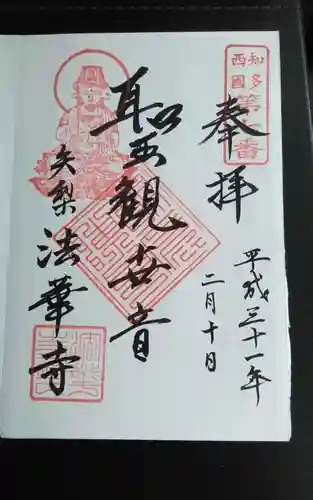 知多
西國
奉拝
平成三十一年
二月十日
聖観世音
矢梨
法華寺